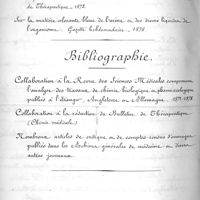 de Thérapeutique. _ 1872.
Sur la matière colorante bleue de l'urine et des divers liquides de
l'organisme. Gazette hebdomadaire _ 1878
Bibliographie.
Collaboration à la Revue des Sciences Médicales comprenant
l'analyse des travaux de chimie biologique et pharmacologique
publiés à l'étranger, Angleterre et Allemagne 1877-1878
Collaboration à la rédaction du Bulletin de Thérapeutique
(Chimie médicale)
Nombreux articles de critique et de comptes rendus d'ouvrages
publiés dans les Archives générales de médecine et divers
autres journaux.